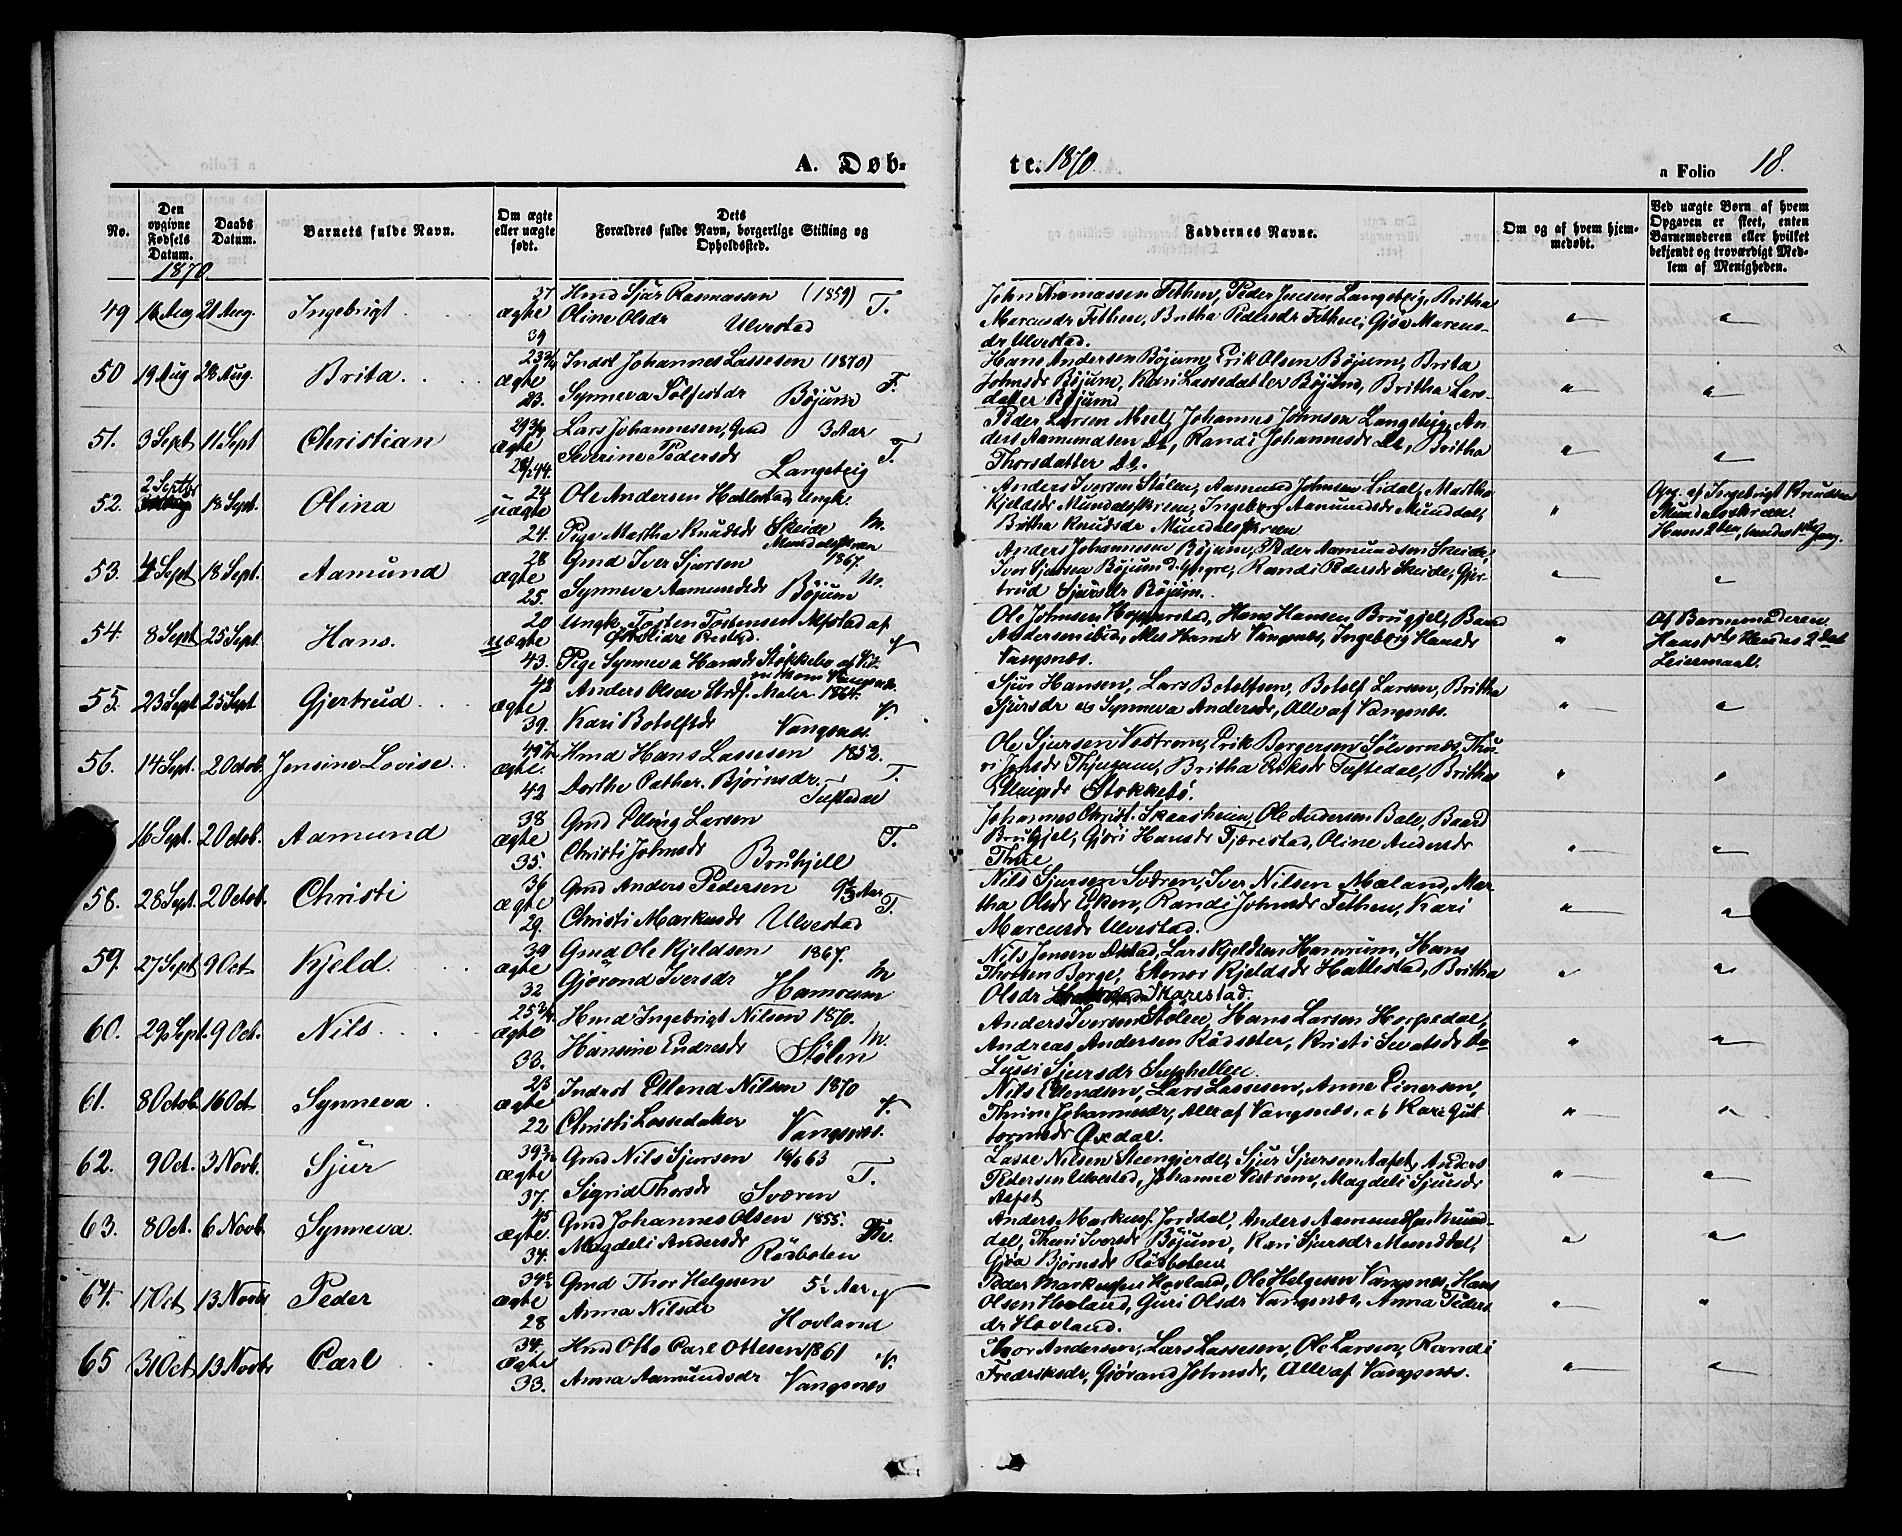 A. Døb-
te. 1870.
a Folio 18.
No.
Den opgivne Fødsels Datum.
Daabs Datum.
Barnets fulde Navn.
Om ægte eller uægte født.
Dets Forældres fulde Navn, borgerlige Stilling og Opholdssted.
Faddernes Navne.
Om og af hvem hjemmedøbt.
Ved uægte Børn af hvem Opgaven er skeet, enten Barnemoderen eller hvilket bekjendt og troværdigt Medlem af Menigheden.
1870.
49 16 Aug 21 Aug. Ingebrigt 37 ægte 39
Hmd Sjur Rasmussen (1859) T.
Oline Olsdr Ulvestad
John Thomassen Fethen, Peder Jensen Langeteig, Britha
Marcusdr Fethen, Britha Pedersdr Fethen, Gjøa Marcus-
dr Ulvestad.
50 19 Aug 28 Aug. Brita ægte 23.
Inderst Johannes Lassesen (1870) F.
Synneva Tolfestdr Bøjum
Hans Andersen Bøjum, Erik Olsen Bøjum, Brita
Johnsdr Bøjum, Kari Lassedatter Bøjum, Britha Lars-
datter Bøjum
51. 3 Sept 11 Sept Christian ægte
Lars Johannesen, Gmd 3 Aar T.
Severine Pedersdr Langeteig
Peder Larsen Meel, Johannes Johnsen Langeteig, An-
ders Aamundsen Do, Randi Johannesdr Do, Britha
Thorsdatter Do.
52. 2 Septbr 18 Sept. Olina 24 uægte 24.
Ole Andersen Hatlestad Ungk.
Pige Martha Knudsdr Skeide M.
Mundalsskreen
Anders Iversen Stølen, Aamund Johnsen Lidal, Martha
Kjeldsdr Mundalsskreen, Ingeborg Aamundsdr Mundal,
Britha Knudsdr Mundalsskreen
Opg. af Ingebrigt Knudsen
Mundalsskreen.
Hans 2den, hendes 1ste Gang.
53. 4 Sept 18 Sept. Aamund 28 ægte 25.
Gmd Iver Sjursen 1867.
Synneva Aamundsdr Bøjum M.
Anders Johannesen Bøjum, Peder Aamundsen Skeide,
Iver Sjursen Bøjum d. yngre, Randi Pedersdr Skeide, Gjer-
trud Sjursdr Bøjum.
54. 8 Sept 25 Sept. Hans. 20 uægte 43.
Ungk. Tosten Tostensen Alfstad af
Pige Synneva Hansdr Stokkebø af Vik
Ole Johnsen Hopperstad, Hans Hansen Bruggjel, Baard
Andersen ibid, Alis Hansdr Vangsnes, Ingeborg Hansdr
Vangsnes.
Af Barnemoderen.
Hans 1ste Hendes 2det
Leiermaal.
55. 23 Sept 25 Sept Gjertrud 42 ægte 39.
Anders Olsen Strdf. Maler 1864. V.
Kari Botolfsdr Vangsnes.
Sjur Hansen, Lars Botolfsen, Botolf Larsen, Britha
Sjursdr og Synneva Andersdr, Alle af Vangsnes.
56. 14 Sept. 2 Octob. Jensine Lovise ægte. 42
Hmd Hans Lassesen 1852. T.
Dorthe Cathar. Bjørnsdr Tuftedal
Ole Sjursen Vestrem, Erik Borgersen Sølvernes, Thu-
ri Jonsdr Thjugum, Britha Eriksdr Tuftedal, Britha
Ellingsdr Stokkebø.
16 Sept. 2 Octob. Aamund 38 ægte 35.
Gmd Elling Larsen T.
Christi Johnsdr Bruhjell
Johannes Christ. Skaasheim, Ole Andersen Bale, Baard
Bruhjel, Gjøri Hansdr Fjærestad, Oline Andersdr
Thue
58. 28 Sept. 2 Octob. Christi 36 ægte 29.
Gmd Anders Pedersen Aar T.
Christi Markusdr Ulvestad
Nils Sjursen Sværen, Iver Nilsen Mæland, Mar-
tha Olsdr Eken, Randi Johnsdr Fethen, Kari
Marcusdr Ulvestad.
59. 27 Sept 9 Oct Kjeld. 39 ægte 32
Gmd Ole Kjeldsen 1867. M
Gjørond Iversdr Hamrum
Nils Jensen Distad, Lars Kjeldsen Hamrum, Hans
Thorsen Berge, Stener Kjeldsdr Hattestad, Britha
Olsdr Skarestad.
60. 29 Sept. 9 Oct. Nils ægte 33.
Hmd Ingebrigt Nilsen 1870. M.
Hansine Endresdr Stølen
Anders Iversen Stølen, Hans Larsen Horpedal,
Andreas Andersen Rødseter, Kristi Iversdr do
Lussi Sjursdr Suphellen.
61. 8 Octob. 16 Oct. Synneva 23 ægte 22
Inderst Ellend Nilsen 1870 V.
Christi Lassedatter Vangsnes.
Nils Ellendsen, Lars Lassesen, Anne Einersen,
Thrine Johannesdr, Alle af Vangsnes, og Kari Gut-
tormsdr Øxdal.
62. 9 Oct. 3 Novb. Sjur ægte 37.
Gmd Nils Sjursen 16/6 63 T.
Sigrid Thorsdr Sværen
Lasse Nilsen Steengjerde, Sjur Sjursen Aafet, Anders
Pedersen Ulvestad, Johanne Vestrem, Magdeli Sjursdr
Aafet
63. 8 Oct. 6 Novb. Synneva. 45 ægte. 34.
Gmd Johannes Olsen 1855. M.
Magdeli Andersdr Røsboten
Anders Markusf. Jordal, Anders Aamundsen Mun-
dal, Thuri Iversdr Bøjum, Kari Sjursdr Mundal,
Gjøa Bjørnsdr Røsboten
64. 17 Oct 13 Novbr Peder ægte 28
Gmd Thor Helgesen 5½ Aar V
Anna Nilsdr Hovland
Peder Markussen Hovland, Ole Helgesen Vangsnes, Hans
Olsen Hovland, Guri Olsdr Vangsnes, Anna Peders-
dr Hovland.
65 31 Oct 13 Novbr Carl 34. ægte 33.
Hmd Otto Carl Ottesen 1861 V.
Anna Aamundsdr Vangsnes
Thor Andersen, Lars Lassesen, Ole Larsen, Randi
Fredriksdr, Gjørand Johnsdr, Alle af Vangsnes.